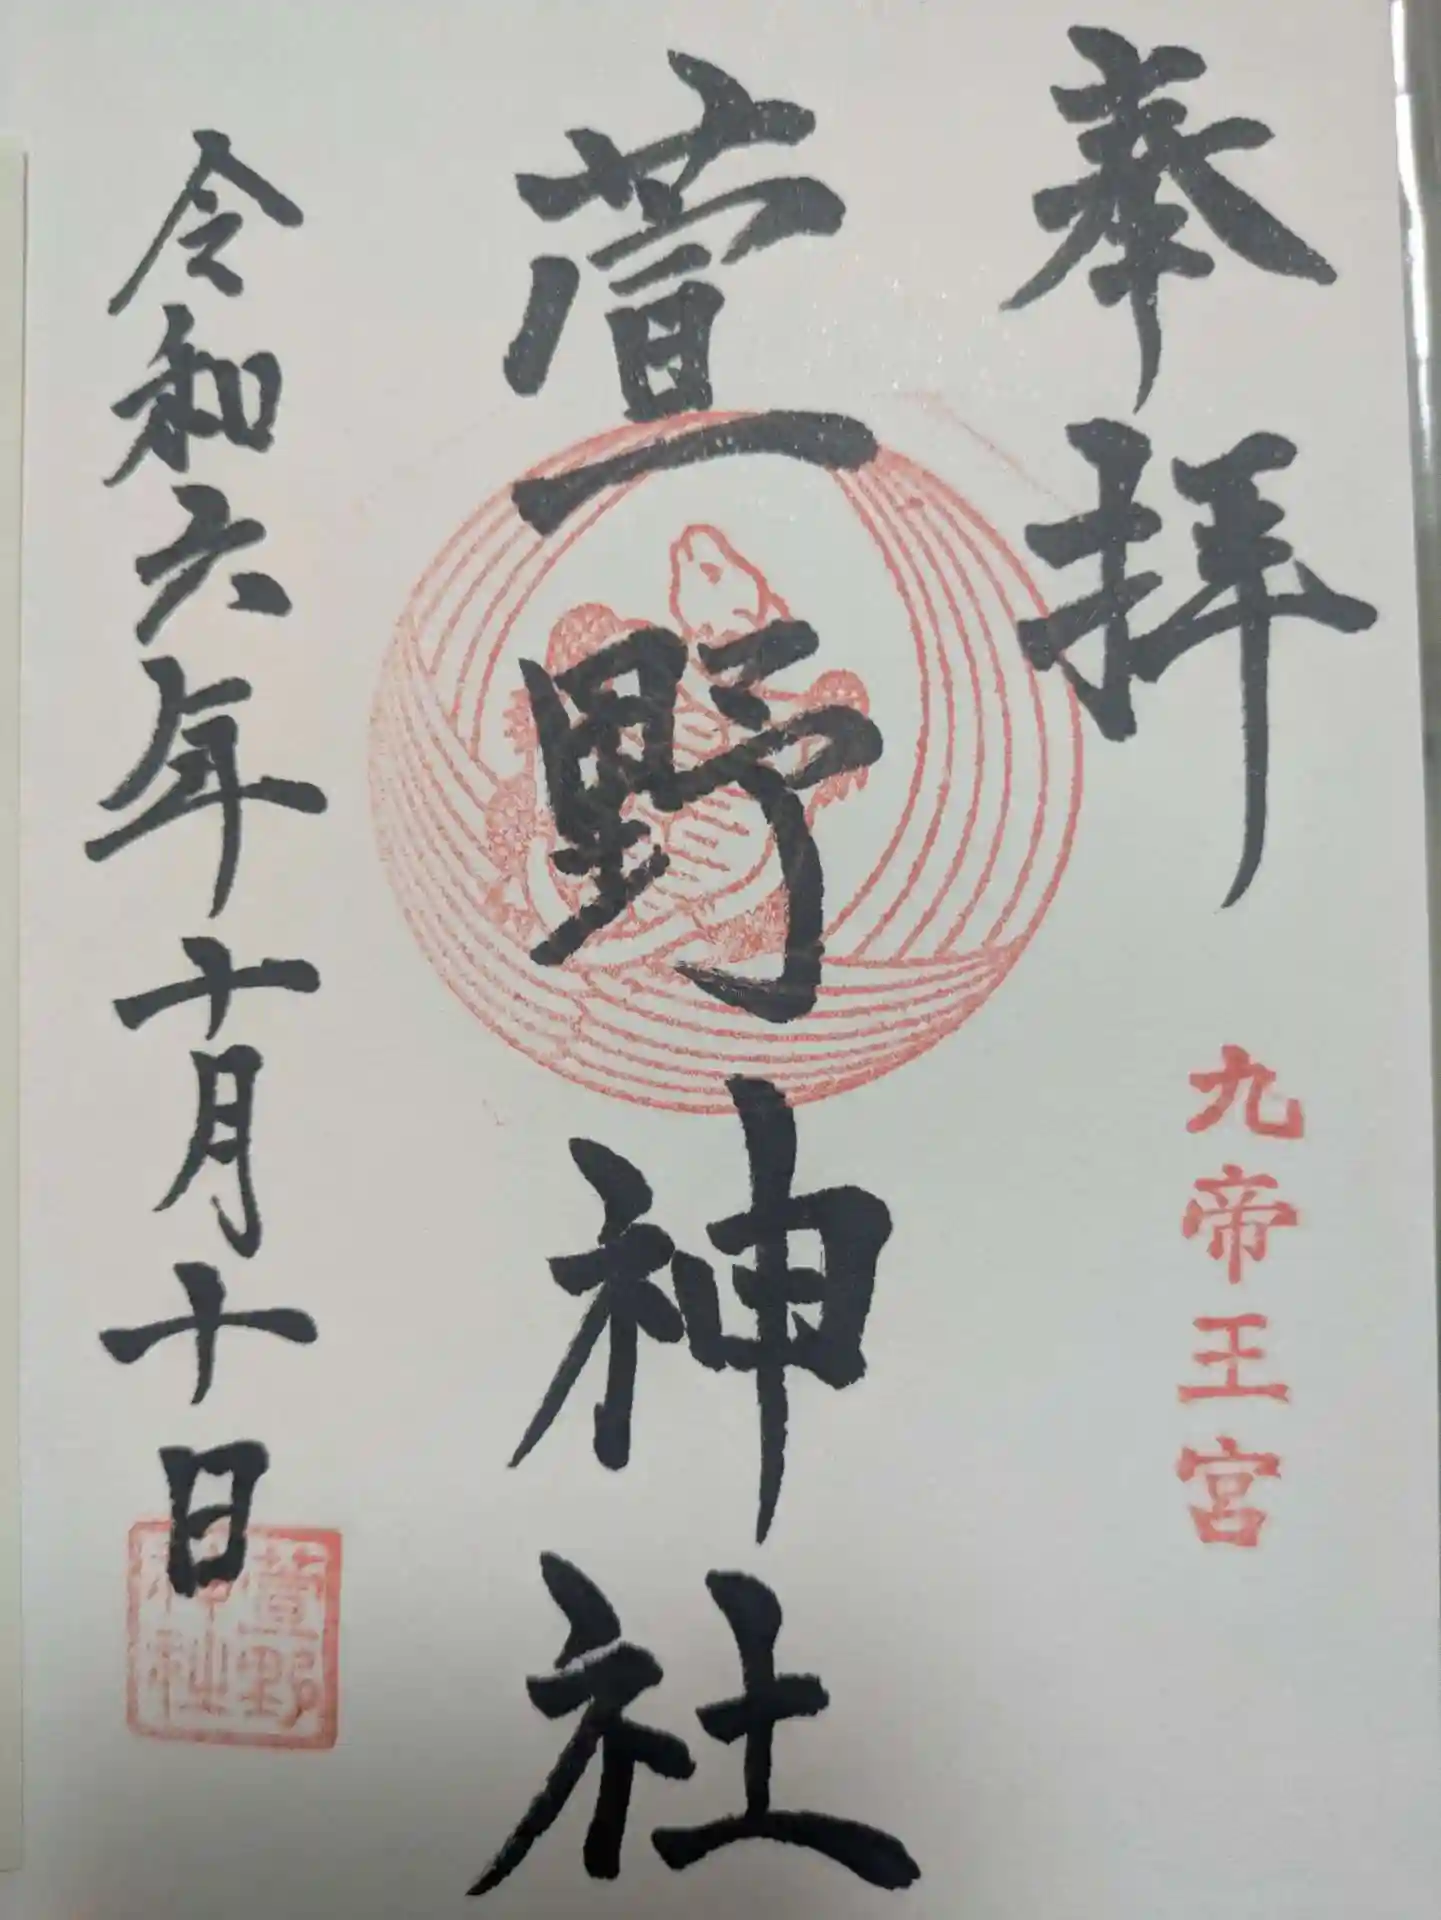 奉拝
九帝王宮
萱野神社
令和六年十月十日
萱野
神社